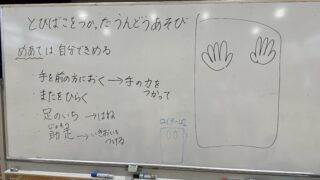 とびばこをつかったうんどうあそび
めあては自分できめる
・手を前の方におく→手の力を
つかって
・またをひらく
・足のいち→はね
じょそう
・助走→いきおいを
つける